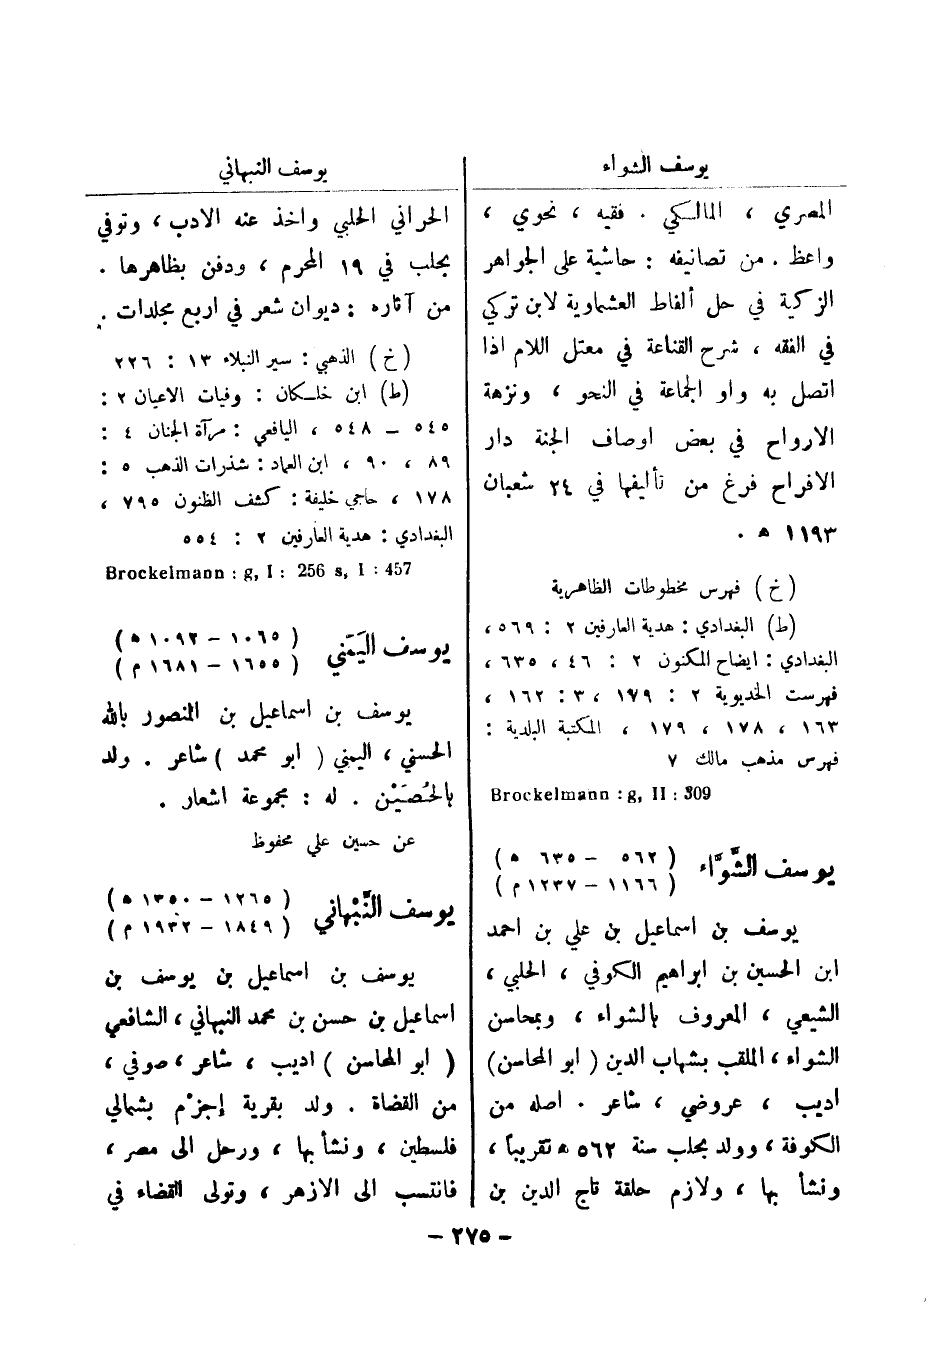 يوسف الشواء
المصري ، المالكي . فقيه ، نحوي ،
واعظ . من تصانيفه : حاشية على الجواهر
الزكية في حل ألفاظ العشماوية لابن تركي
في الفقه ، شرح القناعة في معتل اللام اذا
اتصل به واو الجماعة في النحو ، ونزهة
الارواح في بعض اوصاف الجنة دار
الافراح فرغ من تأليفها في ٢٤ شعبان
١١٩٣ ه .
( خ ) فهرس مخطوطات الظاهرية
(ط) البغدادي : هدية العارفين ٢ : ٥٦٩ ،
البغدادي : ايضاح المكنون ٢ : ٤٦ ، ٦٣٥ ،
فهرست الخديوية ٢ : ١٧٩ ، ٣ : ١٦٢ ،
١٦٣ ، ١٧٨ ، ١٧٩ ، المكتبة البلدية :
فهرس مذهب مالك ٧
Brockelmann : g, II : 309
يوسف الشَّوَّاء ( ٥٦٢ – ٦٣٥ ه )
( ١١٦٦ – ١٢٣٧ م )
يوسف بن اسماعيل بن علي بن احمد
ابن الحسين بن ابراهيم الكوفي ، الحلبي ،
الشيعي ، المعروف بالشواء ، وبمحاسن
الشواء ، الملقب بشهاب الدين ( ابو المحاسن)
أديب ، عروضي ، شاعر . اصله من
الكوفة ، وولد بحلب سنة ٥٦٢ ه تقريباً ،
ونشأ بها ، ولازم حلقة تاج الدين بن
يوسف النبهاني
الحراني الحلبي واخذ عنه الادب ، وتوفي
بحلب في ١٩ المحرم ، ودفن بظاهرها .
من آثاره : ديوان شعر في اربع مجلدات .
( خ ) الذهبي : سير النبلاء ١٣ : ٢٢٦
(ط) ابن خلـكان : وفيات الاعيان ٢ :
٥٤٥ – ٥٤٨ ، اليافعي : مرآة الجنان ٤ :
٨٩ ، ٩٠ ، ابن العماد : شذرات الذهب ٥ :
١٧٨ ، حاجي خليفة : كشف الظنون ٧٩٥ ،
البغدادي : هدية العارفين ٢ : ٥٥٤
Brockelmann : g, I : 256 s, I : 457
يوسف اليَمَني ( ١٠٦٥ – ١٠٩٢ ه )
( ١٦٥٥ – ١٦٨١ م )
يوسف بن اسماعيل بن المنصور بالله
الحسني ، اليمني ( ابو محمد ) شاعر . ولد
بالحُصَيْن . له : مجموعة اشعار .
عن حسين علي محفوظ
يوسف النَّبْهاني ( ١٢٦٥ – ١٣٥٠ ه )
( ١٨٤٩ – ١٩٣٢ م )
يوسف بن اسماعيل بن يوسف بن
اسماعيل بن حسن بن محمد النبهاني ، الشافعي
( ابو المحاسن ) اديب ، شاعر ، صوفي ،
من القضاة . ولد بقرية إجزْم بشمالي
فلسطين ، ونشأ بها ، ورحل الى مصر ،
فانتسب الى الازهر ، وتولى القضاء في
– ٢٧٥ –